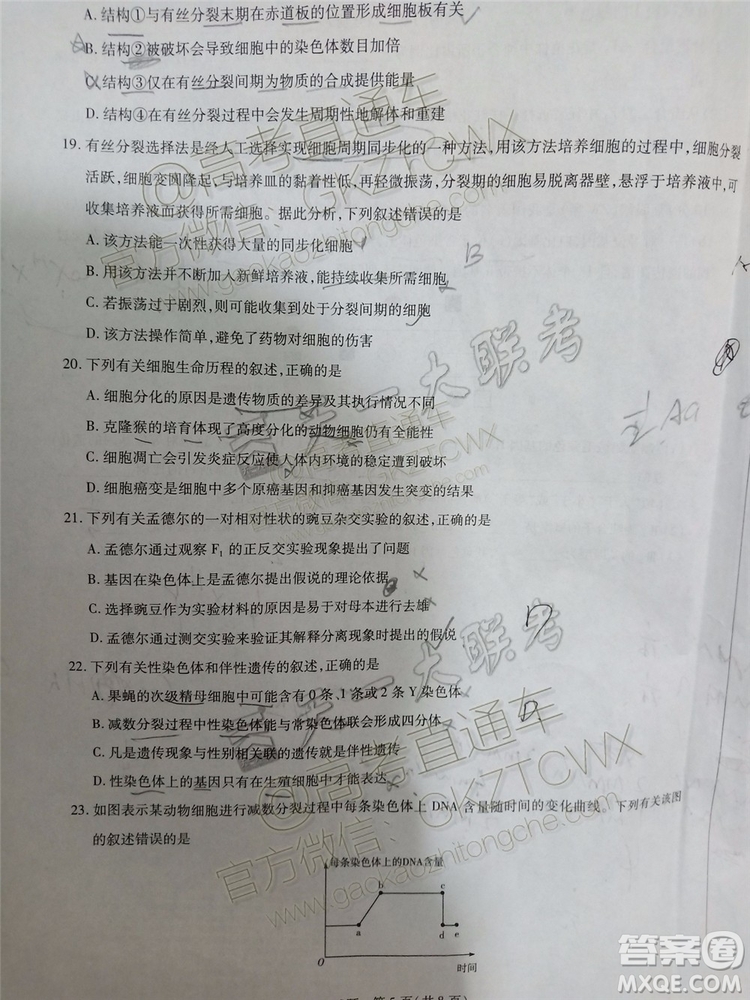 A. 结构①与有丝分裂末期在赤道板的位置形成细胞板有关
B. 结构②被破坏会导致细胞中的染色体数目加倍
C. 结构③仅在有丝分裂间期为物质的合成提供能量
D. 结构④在有丝分裂过程中会发生周期性地解体和重建
19. 有丝分裂选择法是经人工选择实现细胞周期同步化的一种方法,用该方法培养细胞的过程中,细胞分裂
活跃,细胞变圆隆起,与培养皿的黏着性低,再轻微振荡,分裂期的细胞易脱离器壁,悬浮于培养液中,可
收集培养液而获得所需细胞。据此分析,下列叙述错误的是
A. 该方法能一次性获得大量的同步化细胞
B. 用该方法并不断加入新鲜培养液,能持续收集所需细胞
B
C. 若振荡过于剧烈,则可能收集到处于分裂间期的细胞
D. 该方法操作简单,避免了药物对细胞的伤害
20. 下列有关细胞生命历程的叙述,正确的是
A. 细胞分化的原因是遗传物质的差异及其执行情况不同
Aa
B. 克隆猴的培育体现了高度分化的动物细胞仍有全能性
C. 细胞凋亡会引发炎症反应使人体内环境的稳定遭到破坏
D. 细胞癌变是细胞中多个原癌基因和抑癌基因发生突变的结果
21. 下列有关孟德尔的一对相对性状的豌豆杂交实验的叙述,正确的是
A. 孟德尔通过观察 F₁ 的正反交实验现象提出了问题
B. 基因在染色体上是孟德尔提出假说的理论依据
C. 选择豌豆作为实验材料的原因是易于对母本进行去雄
D. 孟德尔通过测交实验来验证其解释分离现象时提出的假说
D
22. 下列有关性染色体和伴性遗传的叙述,正确的是
A. 果蝇的次级精母细胞中可能含有0条、1条或2条Y染色体
B. 减数分裂过程中性染色体能与常染色体联会形成四分体
C. 凡是遗传现象与性别相关联的遗传就是伴性遗传
D. 性染色体上的基因只有在生殖细胞中才能表达
23. 如图表示某动物细胞进行减数分裂过程中每条染色体上 DNA 含量随时间的变化曲线。下列有关该图
的叙述错误的是
每条染色体上的DNA含量
b c
a d e
O 时间
第 5 页(共 8 页)
@高考直通车
官方微信:GKZTCWX
www.gaokaozhitongche.com
天一大联考
天一大联考
@高考直通车
官方微信:GKZTCWX
www.gaokaozhitongche.com
答案圈
MXQE.COM